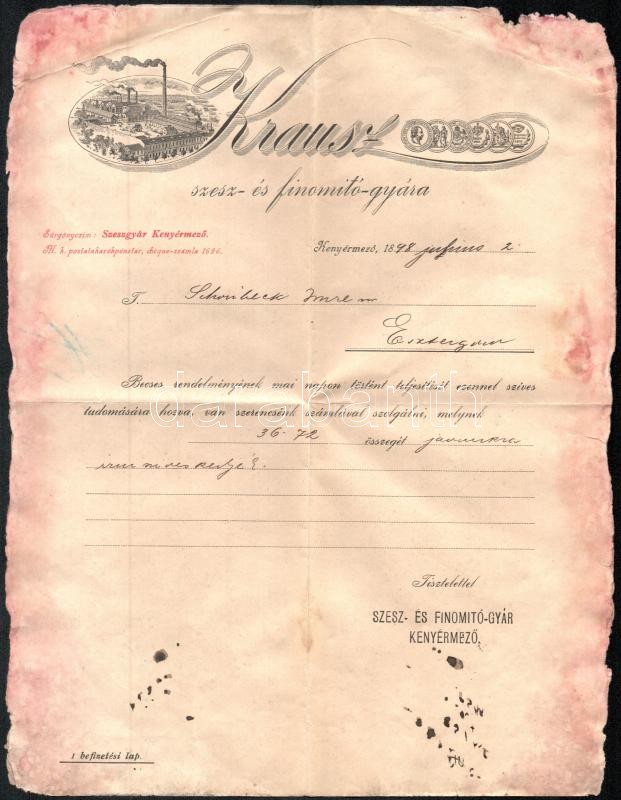 Krausz
szesz- és finomitó-gyára
Sürgönyczim: Szeszgyár Kenyérmező.
M. k. postatakarékpénztár, cheque-számla 1696.
Kenyérmező, 1898 julius 2.
T. Schönbeck Imre
Esztergom
Becses rendelményének mai napon történt teljesitését ezennel szives
tudomására hozva, van szerencsénk számlával szolgálni, melynek
darabanth
36.72 összegét javunkra
Tisztelettel
SZESZ- ÉS FINOMITÓ-GYÁR
KENYÉRMEZŐ.
1 befizetési lap.